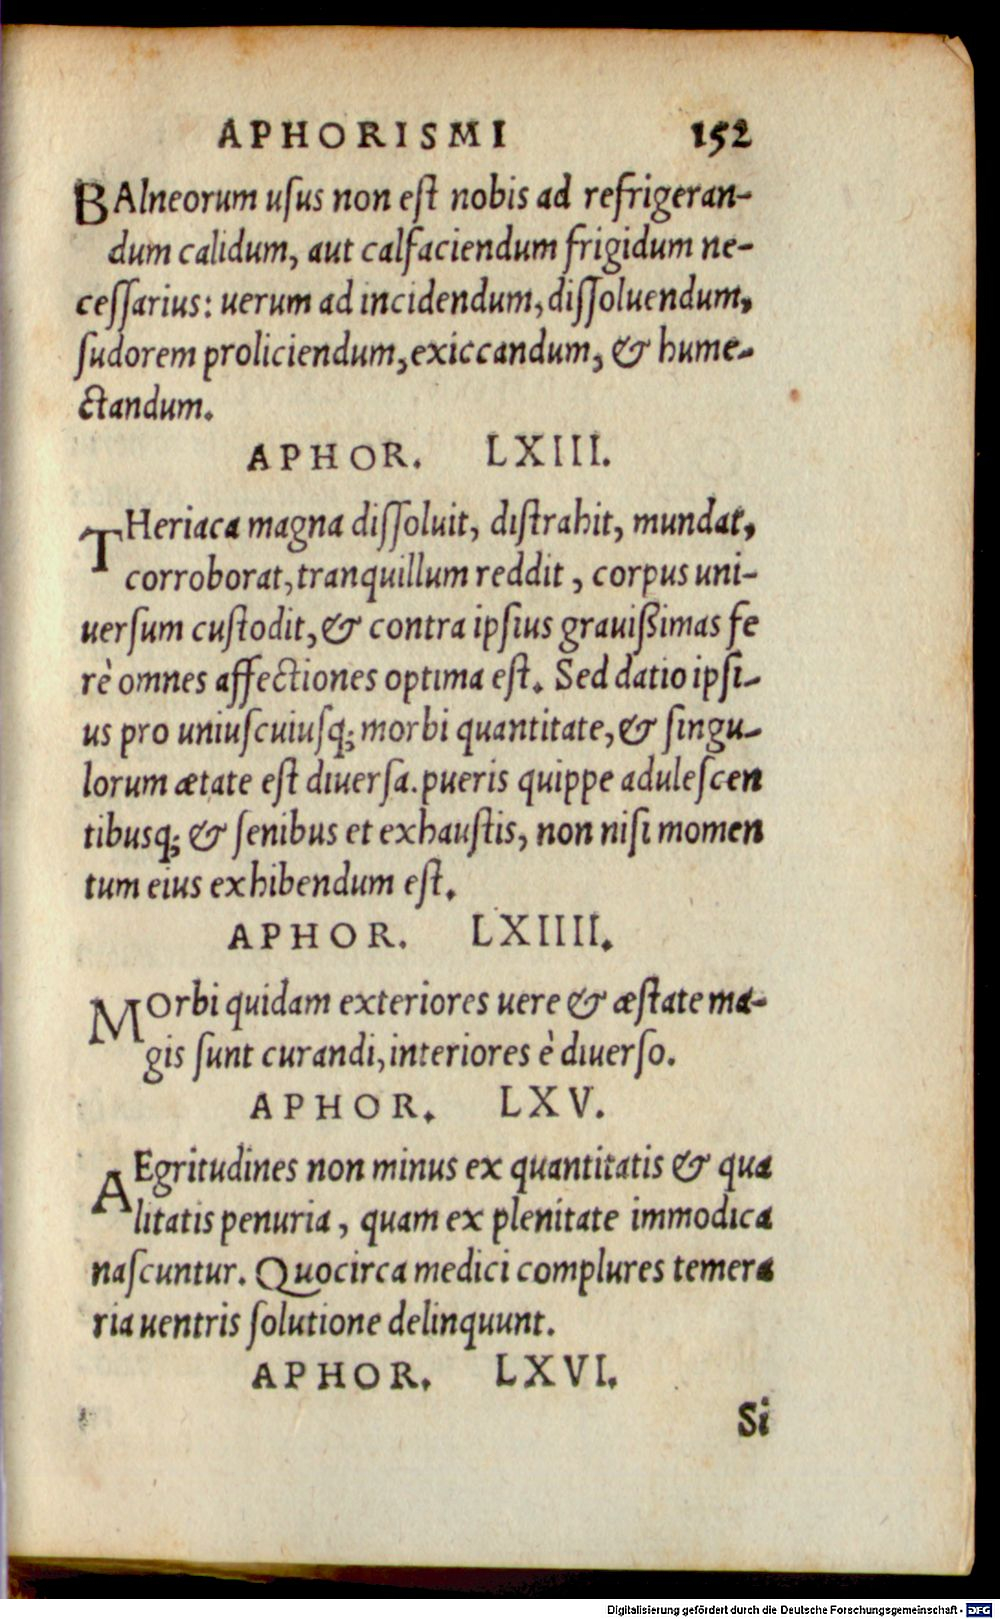 APHORISMI 152
BAlneorum uſus non eſt nobis ad refrigeran-
dum calidum, aut calfaciendum frigidum ne-
ceſſarius: uerum ad incidendum, diſſoluendum,
ſudorem proliciendum, exiccandum, & hume-
ctandum.
APHOR. LXIII.
THeriaca magna diſſoluit, diſtrahit, mundat,
corroborat, tranquillum reddit, corpus uni-
uerſum cuſtodit, & contra ipſius grauißimas fe
rè omnes affectiones optima eſt. Sed datio ipſi-
us pro uniuſcuiuſq; morbi quantitate, & ſingu-
lorum ætate eſt diuerſa. pueris quippe aduleſcen
tibusq; & ſenibus et exhauſtis, non niſi momen
tum eius exhibendum eſt.
APHOR. LXIIII.
MOrbi quidam exteriores uere & æſtate ma-
gis ſunt curandi, interiores è diuerſo.
APHOR. LXV.
AEgritudines non minus ex quantitatis & qua
litatis penuria, quam ex plenitate immodica
naſcuntur. Quocirca medici complures temera
ria uentris ſolutione delinquunt.
APHOR. LXVI.
Si
Digitalisierung gefördert durch die Deutsche Forschungsgemeinschaft - DFG